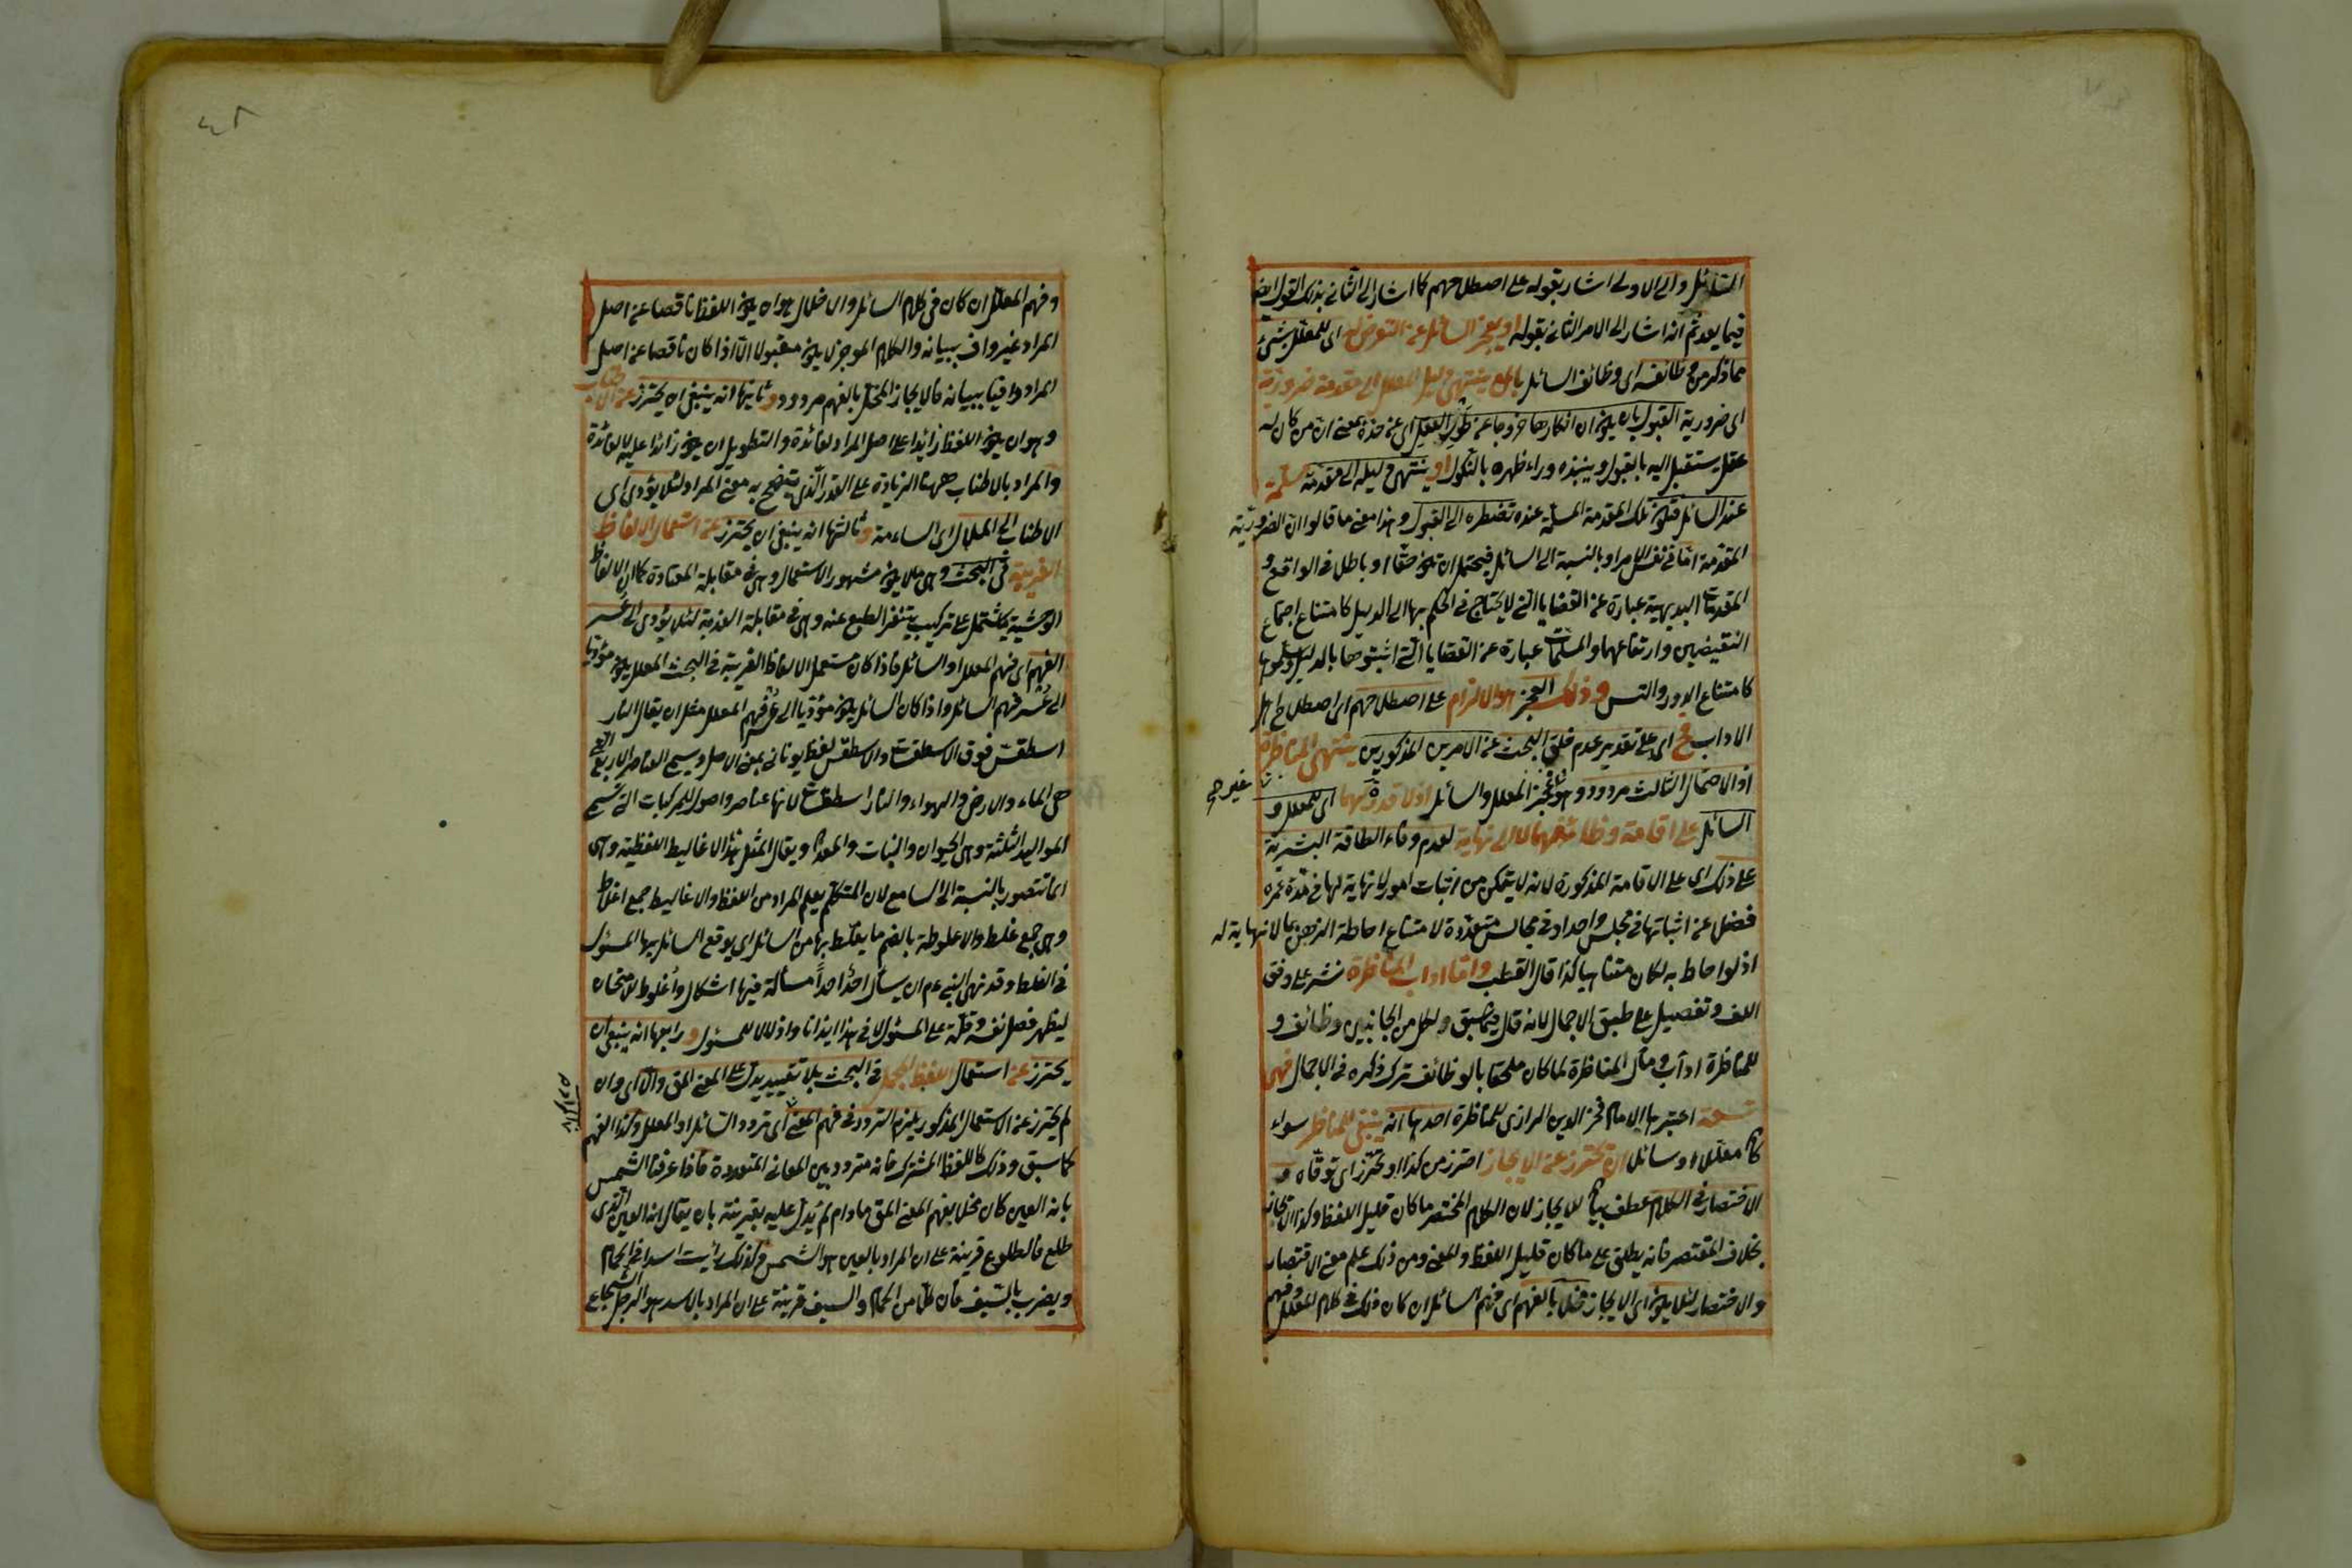 السائل والى الاولى اشار بقوله على اصطلاحهم كما اشار الى الثانى بذلك القول ايضا
فيما بعد ثم انه اشار الى الامر الثانى بقوله او يعجز السائل عن التعرض له اى للمعلل بشئ
مما ذكر من وظائفه اى وظائف السائل بان ينتهى دليل المعلل الى مقدمة ضرورية
اى ضرورية القبول بان يكون انكارها خروجا عن طور العقل اى عن حده بمعنى ان من كان له
عقل يستقبل اليه بالقبول وينبذه وراء ظهره بالنكول او ينتهى دليله الى مقدمة مسلمة
عند السائل فتكون تلك المقدمة المسلمة عنده تضطره الى القبول وهذا معنى ما قالوا ان الضرورية
المقدمة اما فى نفس الامر او بالنسبة الى السائل فيحتمل ان تكون حقا او باطلا فى الواقع و
المقدمات البديهية عبارة عن القضايا التى لا يحتاج فى الحكم بها الى الدليل كامتناع اجتماع
النقيضين وارتفاعهما والمسلمات عبارة عن القضايا التى اثبتوها بالدليل وسلموها
كامتناع الدور والتس وذلك العجز هو الالزام على اصطلاحهم اى اصطلاح اهل
الاداب فح اى على تقدير عدم خلو البحث عن الامرين المذكورين ينتهى المناظرة
اذ الاحتمال الثالث مردود وهو عجز المعلل والسائل اذ لا قدرة لهما اى للمعلل و
غير جى
السائل على اقامة وظائفهما لا الى نهاية لعدم وفاء الطاقة البشرية
على ذلك اى على الاقامة المذكورة لانه لا يتمكن من اثبات امور لا نهاية لها فى مدة عمره
فضلا عن اثباتها فى مجلس واحد او فى مجالس متعددة لامتناع احاطة الذهن بما لا نهاية له
اذ لو احاط به لكان متناهيا كذا قال القطب واما اداب المناظرة نشر على وفق
اللف وتفصيل على طبق الاجمال لانه قال فيما سبق ولكل من الجانبين وظائف و
للمناظرة اداب ومآل المناظرة لما كان ملحقا بالوظائف ترك ذكره فى الاجمال فهى
تسعة اعتبرها الامام فخر الدين الرازى للمناظرة احدها انه ينبغى للمناظر سواء
كان معللا او سائلا ان يحترز عن الايجاز احترز من كذا او تحرز اى توقاه و
الاختصار فى الكلام عطف بيان للايجاز لان الكلام المختصر ما كان قليل اللفظ وكذا الايجاز
بخلاف المقتصر فانه يطلق على ما كان قليل اللفظ والمعنى ومن ذلك علم معنى الاقتصار
والاختصار لئلا يكون اى الايجاز مخلا بالفهم اى فهم السائل ان كان ذلك فى كلام المعلل وفهم
وفهم المعلل ان كان فى كلام السائل والاخلال هو ان يكون اللفظ ناقصا عن اصل
المراد غير واف ببيانه والكلام الموجز لا يكون مقبولا الا اذا كان ناقصا عن اصل
المراد وافيا ببيانه فالايجاز المخل بالفهم مردود وثانيها انه ينبغى ان يحترز عن الاطناب
وهو ان يكون اللفظ زائدا على اصل المراد لفائدة والتطويل ان يكون زائدا عليه لا لفائدة
والمراد بالاطناب ههنا الزيادة على القدر الذى يتضح به معنى المراد لئلا يؤدى اى
الاطناب الى الملال اى الساءمة وثالثها انه ينبغى ان يحترز عن استعمال الالفاظ
الغريبة فى البحث وهى ما لا يكون مشهور الاستعمال وهى فى مقابلة المعتادة كما ان الالفاظ
الوحشية يشتمل على تركيب يتنفر الطبع عنه وهى فى مقابلة العذبة لئلا يؤدى الى عسر
الفهم اى فهم المعلل او السائل فاذا كان مستعمل الالفاظ الغريبة فى البحث المعلل يكون مؤديا
الى عسر فهم السائل واذا كان السائل يكون مؤديا الى عسر فهم المعلل مثل ان يقال النار
اسطقس فوق الاسطقسات والاسطقس لفظ يونانى بمعنى الاصل ويسمى العناصر الاربع التى
هى الماء والارض والهواء والنار اسطقسات لانها عناصر واصول للمركبات التى تسمى
المواليد الثلثة وهى الحيوان والنبات والمعدن ويقال لمثل هذا الاغاليط اللفظية وهى
انما تتصور بالنسبة الى السامع لان المتكلم يعلم المراد من اللفظ والاغاليط جمع اغلاط
وهى جمع غلط والاغلوطة بالضم ما يغلط بها من السائل اى يوقع السائل بها المسئول
فى الغلط وقد نهى النبى عم ان يسأل احدا احدا مسألة فيها اشكال واغلوطا لامتحان
ليظهر فضل نفسه وقلة علم المسئول لان فى هذا ايذانا واذلالا للمسئول ورابعها انه ينبغى ان
يحترز عن استعمال اللفظ المجمل فى البحث بلا تقييد يدل على المعنى المق والا اى وان
لم يحترز عن الاستعمال المذكور يلزم التردد فى فهم المعنى اى تردد السائل او المعلل وكذا الفهم
كما سبق وذلك كاللفظ المشترك فانه متردد بين المعانى المتعددة فاذا عرفنا الشمس
بانه العين كان مخلا بفهم المعنى المق مادام لم يدل عليه بقرينة بان يقال انه العين الذى
طلع فالطلوع قرينة على ان المراد بالعين هو الشمس وكذلك رأيت اسدا فى الحمام
ويضرب بالسيف فان كلا من الحمام والسيف قرينة على ان المراد بالاسد هو الرجل الشجاع